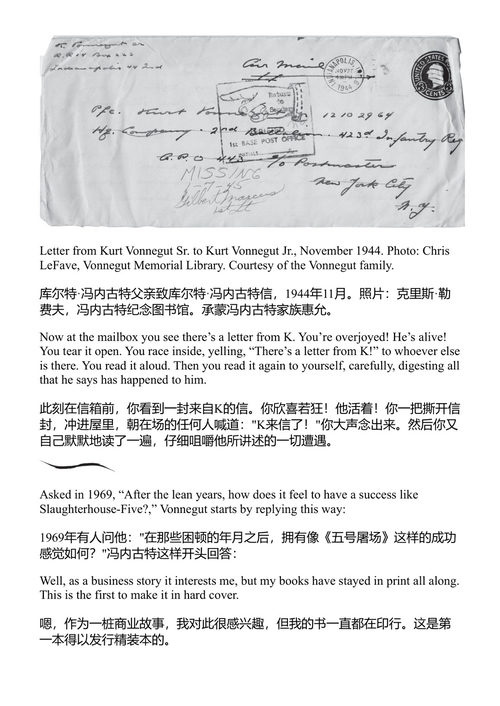 K Vonnegut Sr
R.R 14 Box
Indianapolis 44 Ind
Air Mail
NOV 27
1944
UNITED STATES
CENTS
Return
to
Pfc. Kurt Vonnegut Jr. 12102964
Hq. Company. 2nd 423d Infantry Reg
1st BASE POST OFFICE
A.P.O 443 c/o Postmaster
New York City
N.Y.
MISSING
Letter from Kurt Vonnegut Sr. to Kurt Vonnegut Jr., November 1944. Photo: Chris
LeFave, Vonnegut Memorial Library. Courtesy of the Vonnegut family.
库尔特·冯内古特父亲致库尔特·冯内古特信，1944年11月。照片：克里斯·勒
费夫，冯内古特纪念图书馆。承蒙冯内古特家族惠允。
Now at the mailbox you see there’s a letter from K. You’re overjoyed! He’s alive!
You tear it open. You race inside, yelling, “There’s a letter from K!” to whoever else
is there. You read it aloud. Then you read it again to yourself, carefully, digesting all
that he says has happened to him.
此刻在信箱前，你看到一封来自K的信。你欣喜若狂！他活着！你一把撕开信
封，冲进屋里，朝在场的任何人喊道："K来信了！"你大声念出来。然后你又
自己默默地读了一遍，仔细咀嚼他所讲述的一切遭遇。
Asked in 1969, “After the lean years, how does it feel to have a success like
Slaughterhouse-Five?,” Vonnegut starts by replying this way:
1969年有人问他："在那些困顿的年月之后，拥有像《五号屠场》这样的成功
感觉如何？"冯内古特这样开头回答：
Well, as a business story it interests me, but my books have stayed in print all along.
This is the first to make it in hard cover.
嗯，作为一桩商业故事，我对此很感兴趣，但我的书一直都在印行。这是第
一本得以发行精装本的。